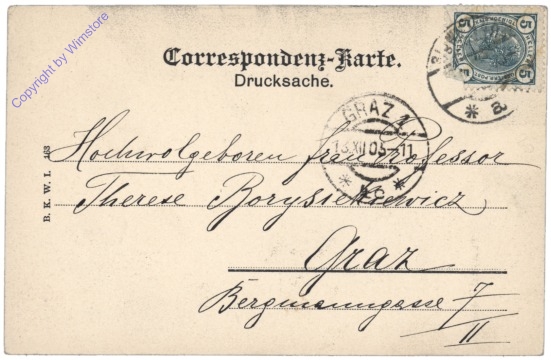 Copyright by Wimstore
Correspondenz-Karte.
Drucksache.
5 5
5 5
GRAZ 1
13.XII.03-11
* *
* a
Hochwolgeboren Frau Professor
Therese Borysiekiewicz
Graz
Bergmanngasse 7
II
B. K. W. I. 463